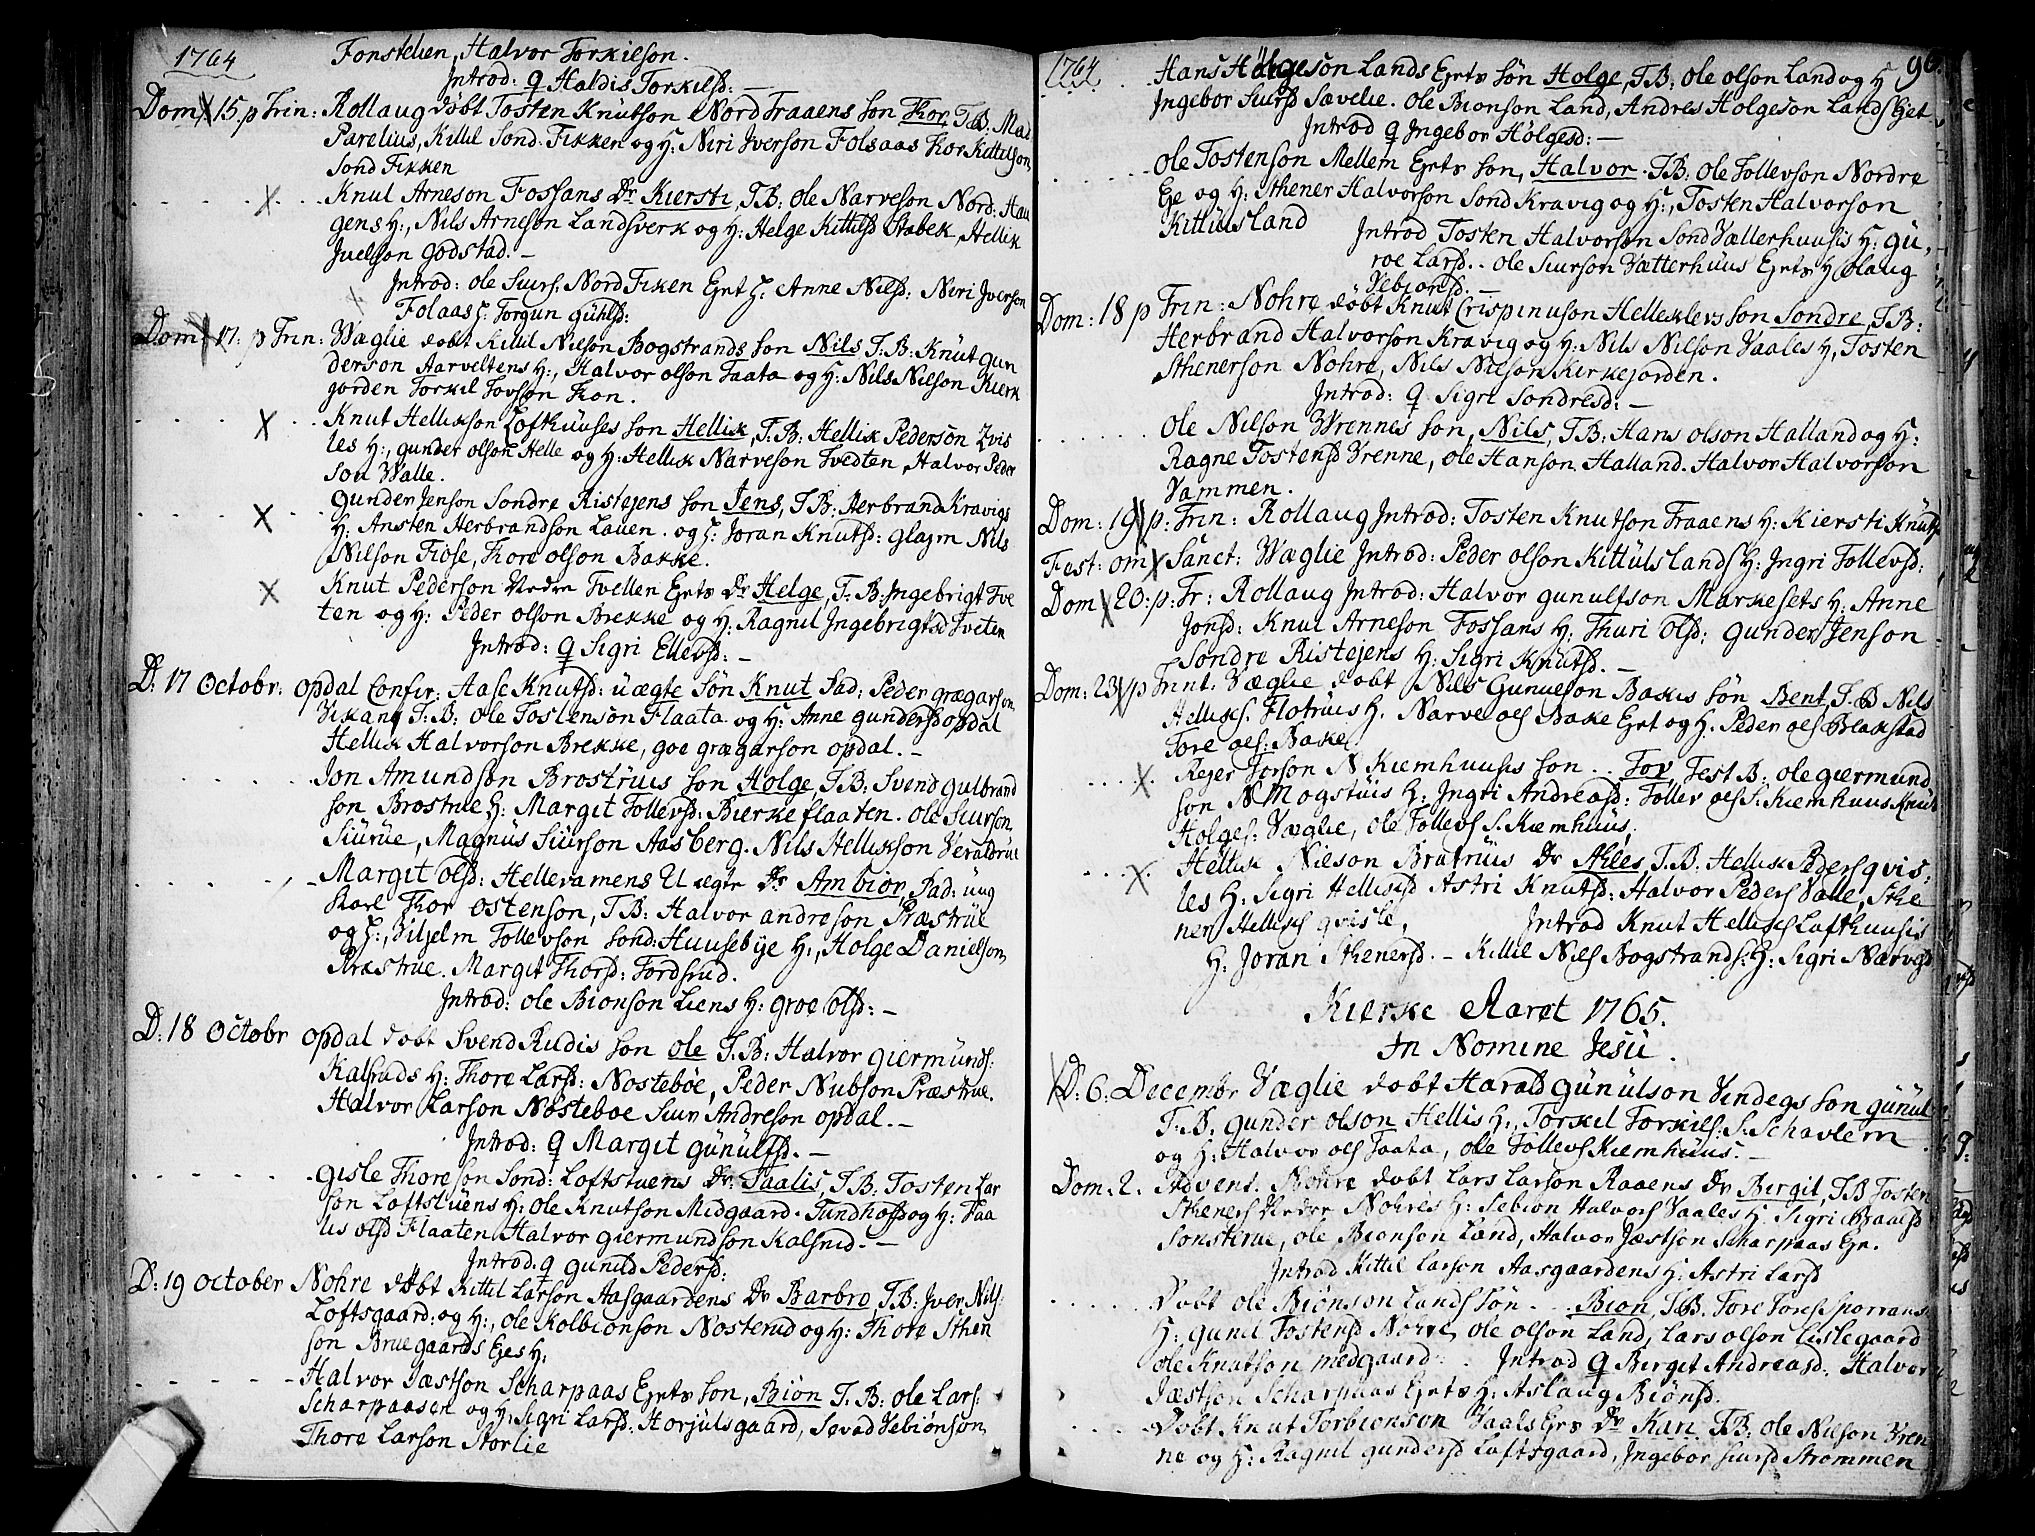 1764
Fonstelien, Halvor Torkilson.
Introd: Q Haldis Torkilsd: —
Dom 15. p Trin: Rollaug döbt Tosten Knutson Nord Traaens Son Thor, T.B: Mad
Parelius, Killil Sond. Fikken og H: Niri Iverson Folsaas Thor Kittilson
Sond Fikken
Knul Arneson Fossans Dr Kiersti, T.B: Ole Narveson Nord: Hau
gens H:, Nils Arneson Landsverk og H: Helge Kittilsd Stabek, Hellik
Juelson Godstad. —
Introd: Ole Siurs: Nord Fiken Ejrt H: Anne Nilsd: Niri Iverson
Folaas H: Torgun Guhlsd:
Dom 17: p Trin: Wæglie döbt Killil Nilson Bogstrands Son Nils T.B: Knut Gun
derson Aarveltens H:, Halvor Olson Taata og H: Nils Nilson Kierk
gorden Torkil Tovson Kon.
Knut Hellikson Lofthuuses Son Hellik, T.B: Hellik Pederson Qvis
les H:, Gunder Olson Helle og H: Hellik Narveson Tvedten, Halvor Peder
son Walle.
Gunder Jenson Sondre Ristejens Son Jens, T.B: Herbrand Kravigs
H: Ansten Herbrandson Lauen. og H: Joran Knutsd: Glaim Nils
Nilson Fiose, Thore Olson Bakke.
Knut Pederson Nedre Tvellen Ejets Dr Helge, T.B: Ingebrigt Tve
ten og H: Peder Olson Brekke og H: Ragnil Ingebrigtsd Tveten
Introd: Q Sigri Ellevsd: —
D: 17 Octobr: Opdal Confer: Aase Knutsd: uægte Søn Knut Fad: Peder Grægarson
Vikang T.B: Ole Tostenson Flaata og H: Anne Gundersd Opdal
Hellik Halvorson Brekke, Goe Grægarson Opdal. —
Jon Amundson Brostrues Son Holge, T.B: Svend Gulbrand
son Brostrue H: Margit Tollevsd: Bierkeflaaten. Ole Siurson
Siurue, Magnus Siurson Aasberg. Nils Hellikson Veraldrue
Margit Olsd: Hellevamens Uægte Dr Ambior, Fad: ung
Karl Thor Ostenson, T.B: Halvor Andreson Præstrue
og H:, Vilhelm Tollevson Sond: Huusebye H:, Holge Danielson
Præstrue. Margit Thorsd: Fordsrud.
Introd: Ole Bionson Liens H: Groe Olsd: —
D: 18 Octobr Opdal döbt Svend Rudis Son Ole T.B: Halvor Giermunds:
Kalsruds H: Thore Larsd: Nosteböe, Peder Nubson Præstrue.
Halvor Larson Nösteboe Siur Andreson Opdal. —
Introd: Q Margit Gunulfsd. —
Gisle Thoreson Sond: Loftstuens Dr: Taalis, T.B: Tosten Lar
son Loftstuens H: Ole Knutson Midgaard. Tundhoff og H: Taa
lis Olsd Flaaten Halvor Giermundson Kalsrud. —
Introd. Q Gunild Pedersd:
D: 19 October Nohre döbt Kittil Larson Aasgaardens Dr Barbro, T.B: Iver Nils:
Loftsgaard: og H:, Ole Kolbionson Nosterud og H: Thore Sthen
son Bruegaards Ejes H:
Halvor Jæstson Scharpaas Ejets Son, Biön T.B: Ole Lars:
Scharpaasen og H: Sigri Larsd: Horjulsgaard, Sevad Vebiönson
Thore Larson Storlie
1764
90.
Hans Hölgeson Lands Ejets Søn Holge, T.B: Ole Olson Land og H
Ingebor Siursd Savelie. Ole Bionson Land, Andres Holgeson Lands Ejet
Introd Q Ingebor Hölgesd: —
Ole Tostenson Mellem Ejets Son, Halvor. T.B: Ole Tollevson Nordre
Eje og H: Sthener Halvorson Sond Kravig og H:, Tosten Halvorson
Kittulsland
Introd Tosten Halvorson Sond Vællerhuusis H: Gu,
roe Larsd. - Ole Siurson Vætterhuus Ejets H Olaug
Vebionsd: —
Dom: 18 p Trin: Nohre döbt Knut Crispinuson Helleklevs Son Sondre, T.B:
Herbrand Halvorson Kravig og H: Nils Nilson Vaales H, Tosten
Sthenerson Nohre, Nils Nilson Kirkejorden.
Introd: Q Sigri Sondresd: —
Ole Nilson Wrennes Son, Nils, T.B: Hans Olson Halland og H:
Ragne Tostensd Vrenne, Ole Hanson Halland. Halvor Halvorson
Vammen.
Dom: 19 p: Trin: Rollaug Introd: Tosten Knutson Traaens H: Kiersti Knuts
Fest: om Sanct: Wæglie Introd: Peder Olson Kittulslands H: Ingri Tollevsd:
Dom 20: p: Tr: Rollaug Introd: Halvor Gunulfson Markesets H: Anne
Jonsd: Knul Arneson Fossans H: Thuri Olsd: Gunder Jenson
Sondre Ristejens H: Sigri Knutsd. —
Dom: 23 p Trint. Væglie döbt Nils Gunueson Bakis Søn Bent, T.B Nils
Helliks. Flotrues H. Narve Ols Bake Ejet og H. Peder Ols Blakstad
Tore Ols: Bake
Rejer Torson N Kiemhuusis Son .. Tov, Test B: Ole Giermund
son N Mogstuis H: Ingri Andreasd: Tollev Ols S. Kiemhuus Knut
Holges: Væglie, Ole Tollevs S. Kiemhuus.
Hellik Nilson Bratruis Dr Ahles T.B: Hellik Peders Qvis,
les H: Sigri Hellisd Astri Knutsd: Halvor Peders Valle, Sthe
ner Hellisch Qvisle, Introd Knut Hellisch Lofthuusis
H: Joran Sthenersd. — Killil Nils Bogstrands: H: Sigri Narvesd
Kierke Aaret 1765.
In Nomine Jesu.
D: 6: Decembr Væglie döbt Harald Gunulson Vindegs Son Gunul
T.B: Gunder Olson Hellis H:, Torkel Torkils: S. Schavlem
og H: Halvor Ols Taata, Ole Tollevs Kiemhuus. —
Dom: 2. Advent. Nohre döbt Lars Larson Raaens Dr Bergit, T.B Tosten
Stheners Nedre Nohres H: Sebion Halvors Vaales H: Sigri Braalsd
Sonsterue, Ole Bionson Land, Halvor Jæstson Scharpaas Eje.
Introd Kittil Larson Aasgaardens H: Astri Larsd
Döbt Ole Biönson Lands Søn .. Bion, T.B. Tore Tores Sporrans
H: Gunil Tostensd Nohre, Ole Olson Land, Lars Olson Lislegaard
Ole Knutson Medgaard: . Introd Q Birget Andreasd: Halvor
Jæstson Scharpaas Ejets H: Aslaug Biönsd:
Döbt Knut Torbienson Vaals Ejes Dr Kari T.B: Ole Nilson Vren
ne og H: Ragnil Gundersd Loftsgaard, Ingebor Siursd Strommen